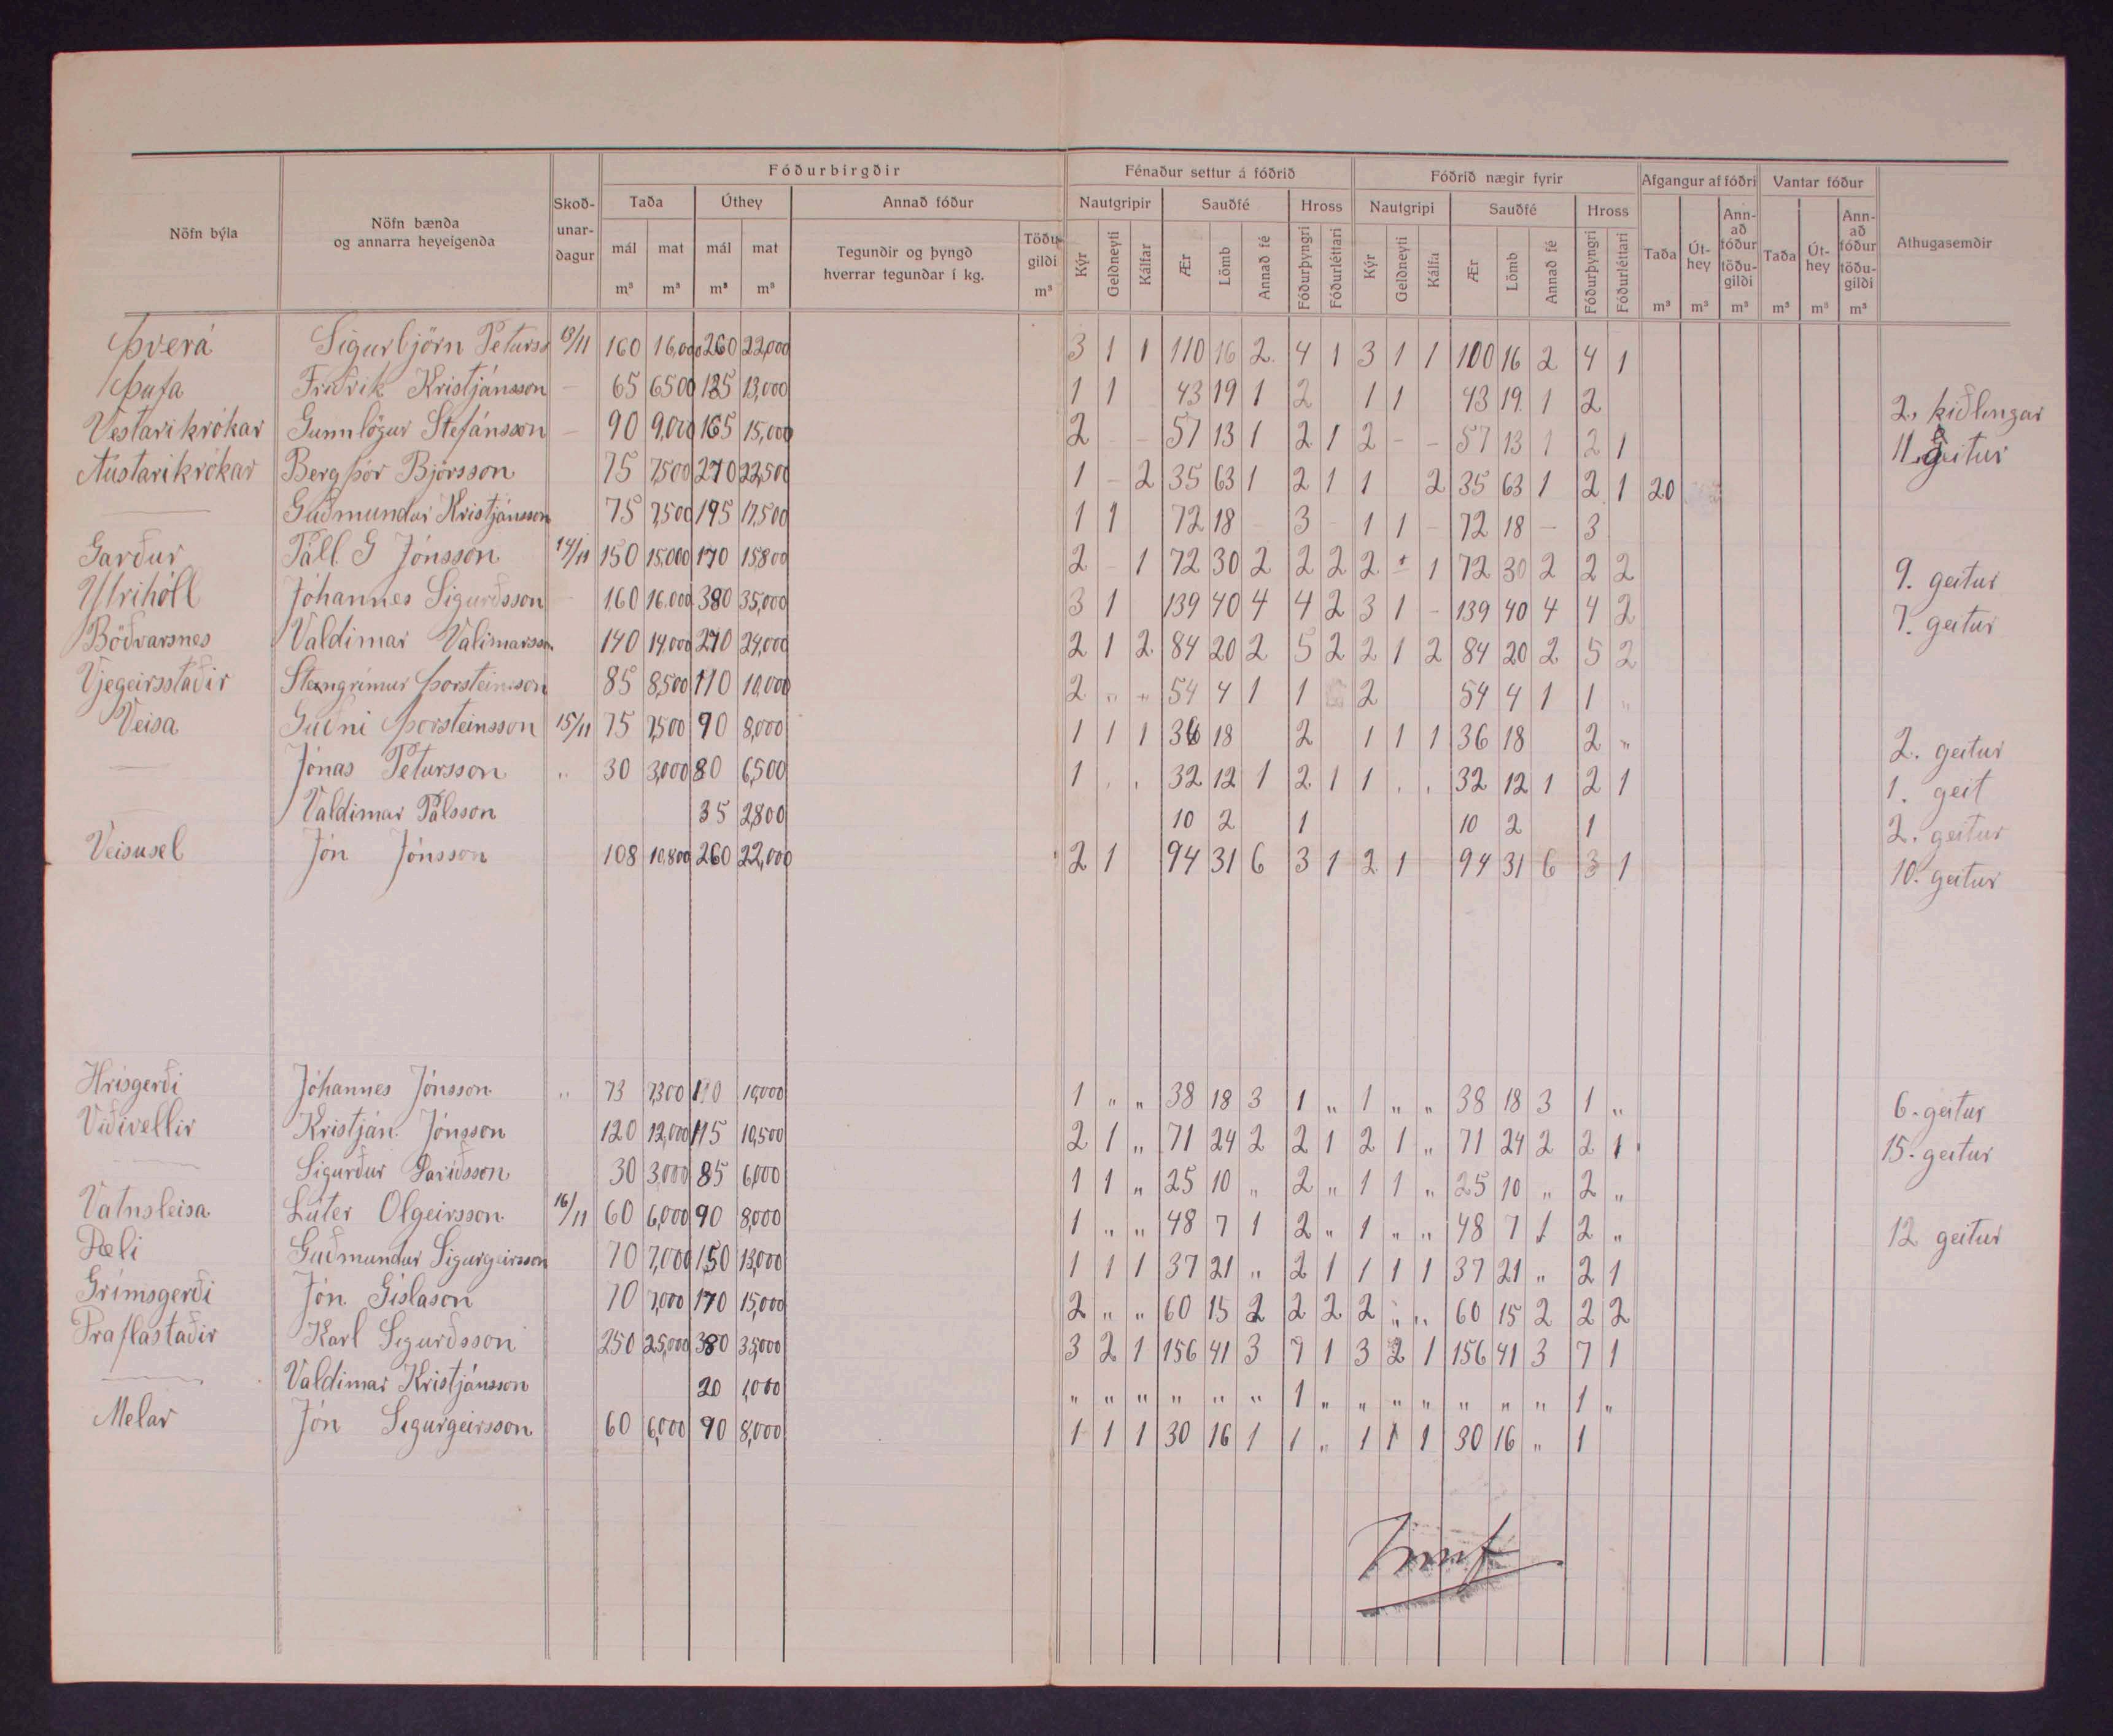 Fóðurbirgðir Fénaður settur á fóðrið Fóðrið nægir fyrir Afgangur af fóðri Vantar fóður
Nöfn býla Nöfn bænda og annarra heyeigenda Skoð-unar-dagur Taða Úthey Annað fóður Nautgripir Sauðfé Hross Nautgripi Sauðfé Hross Taða Út-hey Ann-að fóður töðu-gildi Taða Út-hey Ann-að fóður töðu-gildi Athugasemdir
mál mat mál mat Tegundir og þyngð hverrar tegundar í kg. Töðu-gildi Kýr Geldneyti Kálfar Ær Lömb Annað fé Fóðurþyngri Fóðurléttari Kýr Geldneyti Kálfa Ær Lömb Annað fé Fóðurþyngri Fóðurléttari
m³ m³ m³ m³ m³ m³ m³ m³ m³ m³ m³
Þverá Sigurbjörn Peturss 13/11 160 16,000 260 22,000 3 1 1 110 16 2 4 1 3 1 1 100 16 2 4 1
Þufa Friðrik Kristjánsson – 65 6500 135 13,000 1 1 43 19 1 2 1 1 43 19. 1 2 2, kiðlingar
Vestarikrókar Gunnlögur Stefánsson – 90 9,000 165 15,000 2 – – 57 13 1 2 1 2 – – 57 13 1 2 1 11 geitur
Austarikrókar Bergþór Björsson 75 7,500 270 22,500 1 – 2 35 63 1 2 1 1 2 35 63 1 2 1 20
— Guðmundur Kristjánsson 75 7,500 195 17,500 1 1 72 18 – 3 – 1 1 – 72 18 – 3
Garður Páll. G Jónsson 14/11 150 15,000 170 15,800 2 – 1 72 30 2 2 2 2 1 72 30 2 2 2 9. geitur
Ytrihóll Jóhannes Sigurðsson – 160 16.000 380 35,000 3 1 139 40 4 4 2 3 1 – 139 40 4 4 2 7. geitur
Böðvarsnes Valdimar Valimarsson 140 14,000 270 24,000 2 1 2 84 20 2 5 2 2 1 2 84 20 2 5 2
Vjegeirsstaðir Steingrímur Þorsteinsson 85 8,500 110 10,000 2 „ „ 54 4 1 1 2 54 4 1 1 „
Veisa Guðni Þorsteinsson 15/11 75 7,500 90 8,000 1 1 1 36 18 2 1 1 1 36 18 2 „ 2. geitur
— Jónas Petursson „ 30 3,000 80 6,500 1 . . 32 12 1 2 1 1 . . 32 12 1 2 1 1. geit
— Valdimar Pálsson 35 2,800 10 2 1 10 2 1 2. geitur
Veisusel Jón Jónsson 108 10,800 260 22,000 2 1 94 31 6 3 1 2 1 94 31 6 3 1 10. geitur
Hrísgerði Jóhannes Jónsson „ 73 7,300 110 10,000 1 „ „ 38 18 3 1 „ 1 „ „ 38 18 3 1 „ 6. geitur
Víðivellir Kristján Jónsson 120 12,000 115 10,500 2 1 „ 71 24 2 2 1 2 1 „ 71 24 2 2 1 15. geitur
— Sigurður Davíðsson 30 3,000 85 6,000 1 1 „ 25 10 „ 2 „ 1 1 „ 25 10 „ 2 „
Vatnsleisa Lúter Olgeirsson 16/11 60 6,000 90 8,000 1 „ „ 48 7 1 2 „ 1 „ „ 48 7 1 2 „ 12 geitur
Dæli Guðmundur Sigurgeirsson 70 7,000 150 13,000 1 1 1 37 21 „ 2 1 1 1 1 37 21 „ 2 1
Grímsgerði Jón Gíslason 70 7,000 170 15,000 2 „ „ 60 15 2 2 2 2 „ „ 60 15 2 2 2
Draflastaðir Karl Sigurðsson 250 25,000 380 35,000 3 2 1 156 41 3 7 1 3 2 1 156 41 3 7 1
— Valdimar Kristjánsson 20 1,000 „ „ „ „ „ „ 1 „ „ „ „ „ „ „ 1 „
Melar Jón Sigurgeirsson 60 6,000 90 8,000 1 1 1 30 16 1 1 „ 1 1 1 30 16 „ 1